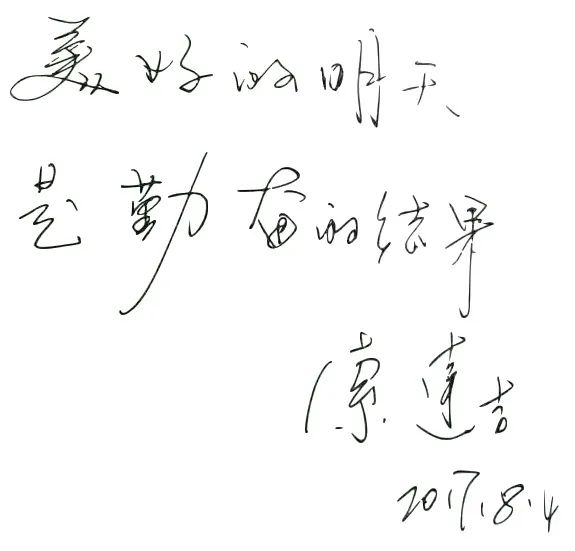 美好的明天
是勤奋的结果
达吉
2017.8.4